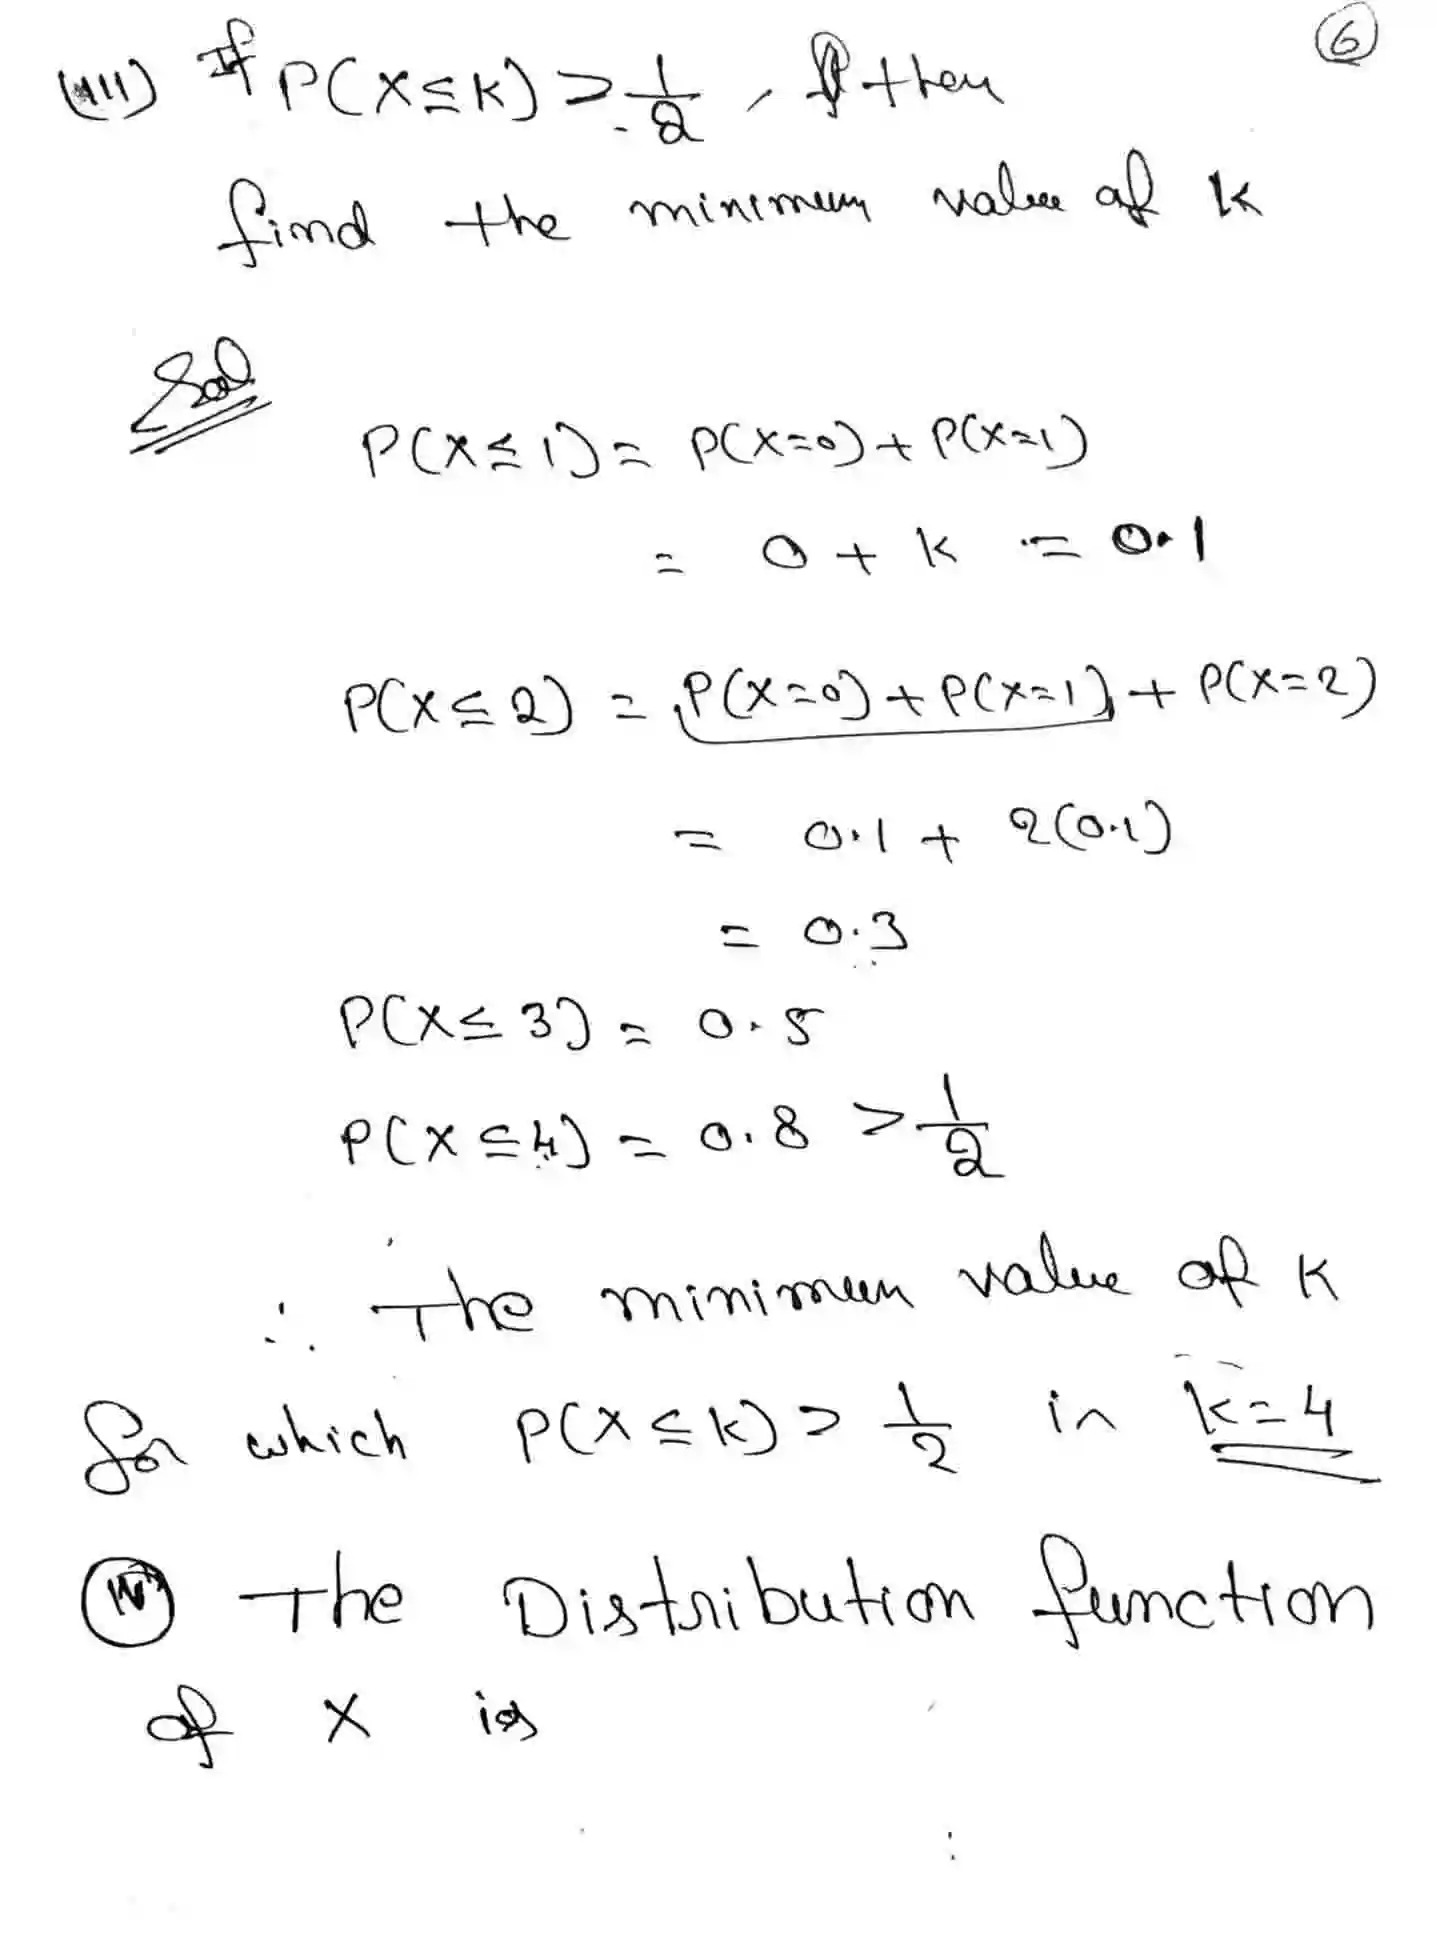 6
(iii) If P(X≤K) > 1/2, then
find the minimum value of K
Sol
P(X≤1) = P(X=0) + P(X=1)
= 0 + K = 0.1
P(X≤2) = P(X=0) + P(X=1) + P(X=2)
= 0.1 + 2(0.1)
= 0.3
P(X≤3) = 0.5
P(X≤4) = 0.8 > 1/2
∴ The minimum value of K
for which P(X≤K) > 1/2 is K=4
(iv) The Distribution function
of X is